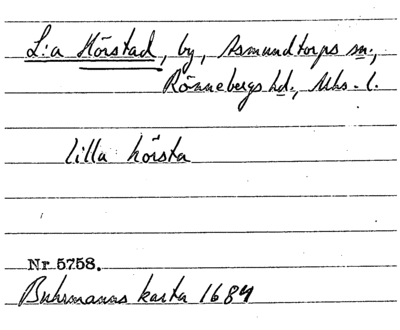 L:a Hörstad, by, Asmundtorps sn.,
Rönnebergs hd., Mhs. l.
lilla hörsta
Nr 5758.
Buhrmanns karta 1684